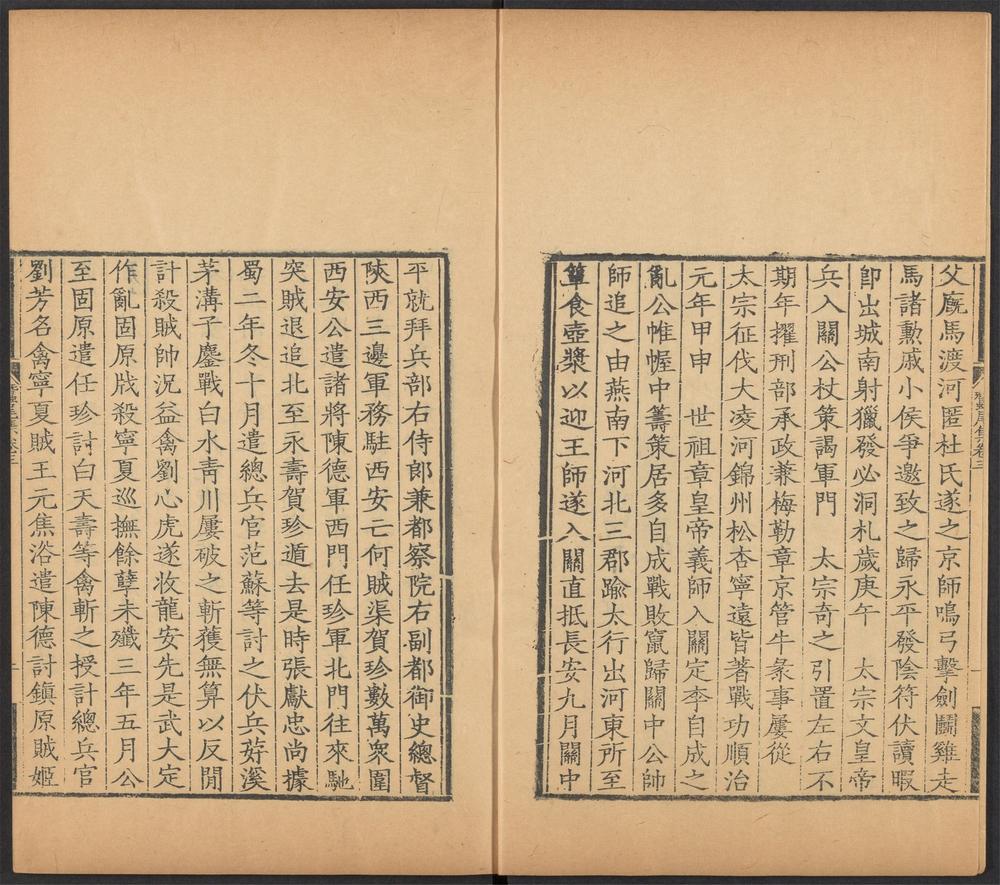 父廐馬渡河匿杜氏遂之京師鳴弓擊劍鬬雞走
馬諸勲戚小侯爭邀致之歸永平發陰符伏讀暇
卽出城南射獵發必洞札歲庚午　太宗文皇帝
兵入關公杖策謁軍門　太宗奇之引置左右不
期年擢刑部承政兼梅勒章京管牛彔事屢從
太宗征伐大凌河錦州松杏寧遠皆著戰功順治
元年甲申　世祖章皇帝義師入關定李自成之
亂公帷幄中籌策居多自成戰敗竄歸關中公帥
師追之由燕南下河北三郡踰太行出河東所至
簞食壺漿以迎王師遂入關直抵長安九月關中
平就拜兵部右侍郎兼都察院右副都御史總督
陜西三邊軍務駐西安亡何賊渠賀珍數萬衆圍
西安公遣諸將陳德軍西門任珍軍北門往來馳
突賊退追北至永壽賀珍遁去是時張獻忠尚據
蜀二年冬十月遣總兵官范蘇等討之伏兵莎溪
茅溝子鏖戰白水青川屢破之斬獲無算以反閒
計殺賊帥況益禽劉心虎遂收龍安先是武大定
作亂固原戕殺寧夏巡撫餘孽未殲三年五月公
至固原遣任珍討白天壽等禽斬之授計總兵官
劉芳名禽寧夏賊王元焦浴遣陳德討鎮原賊姬